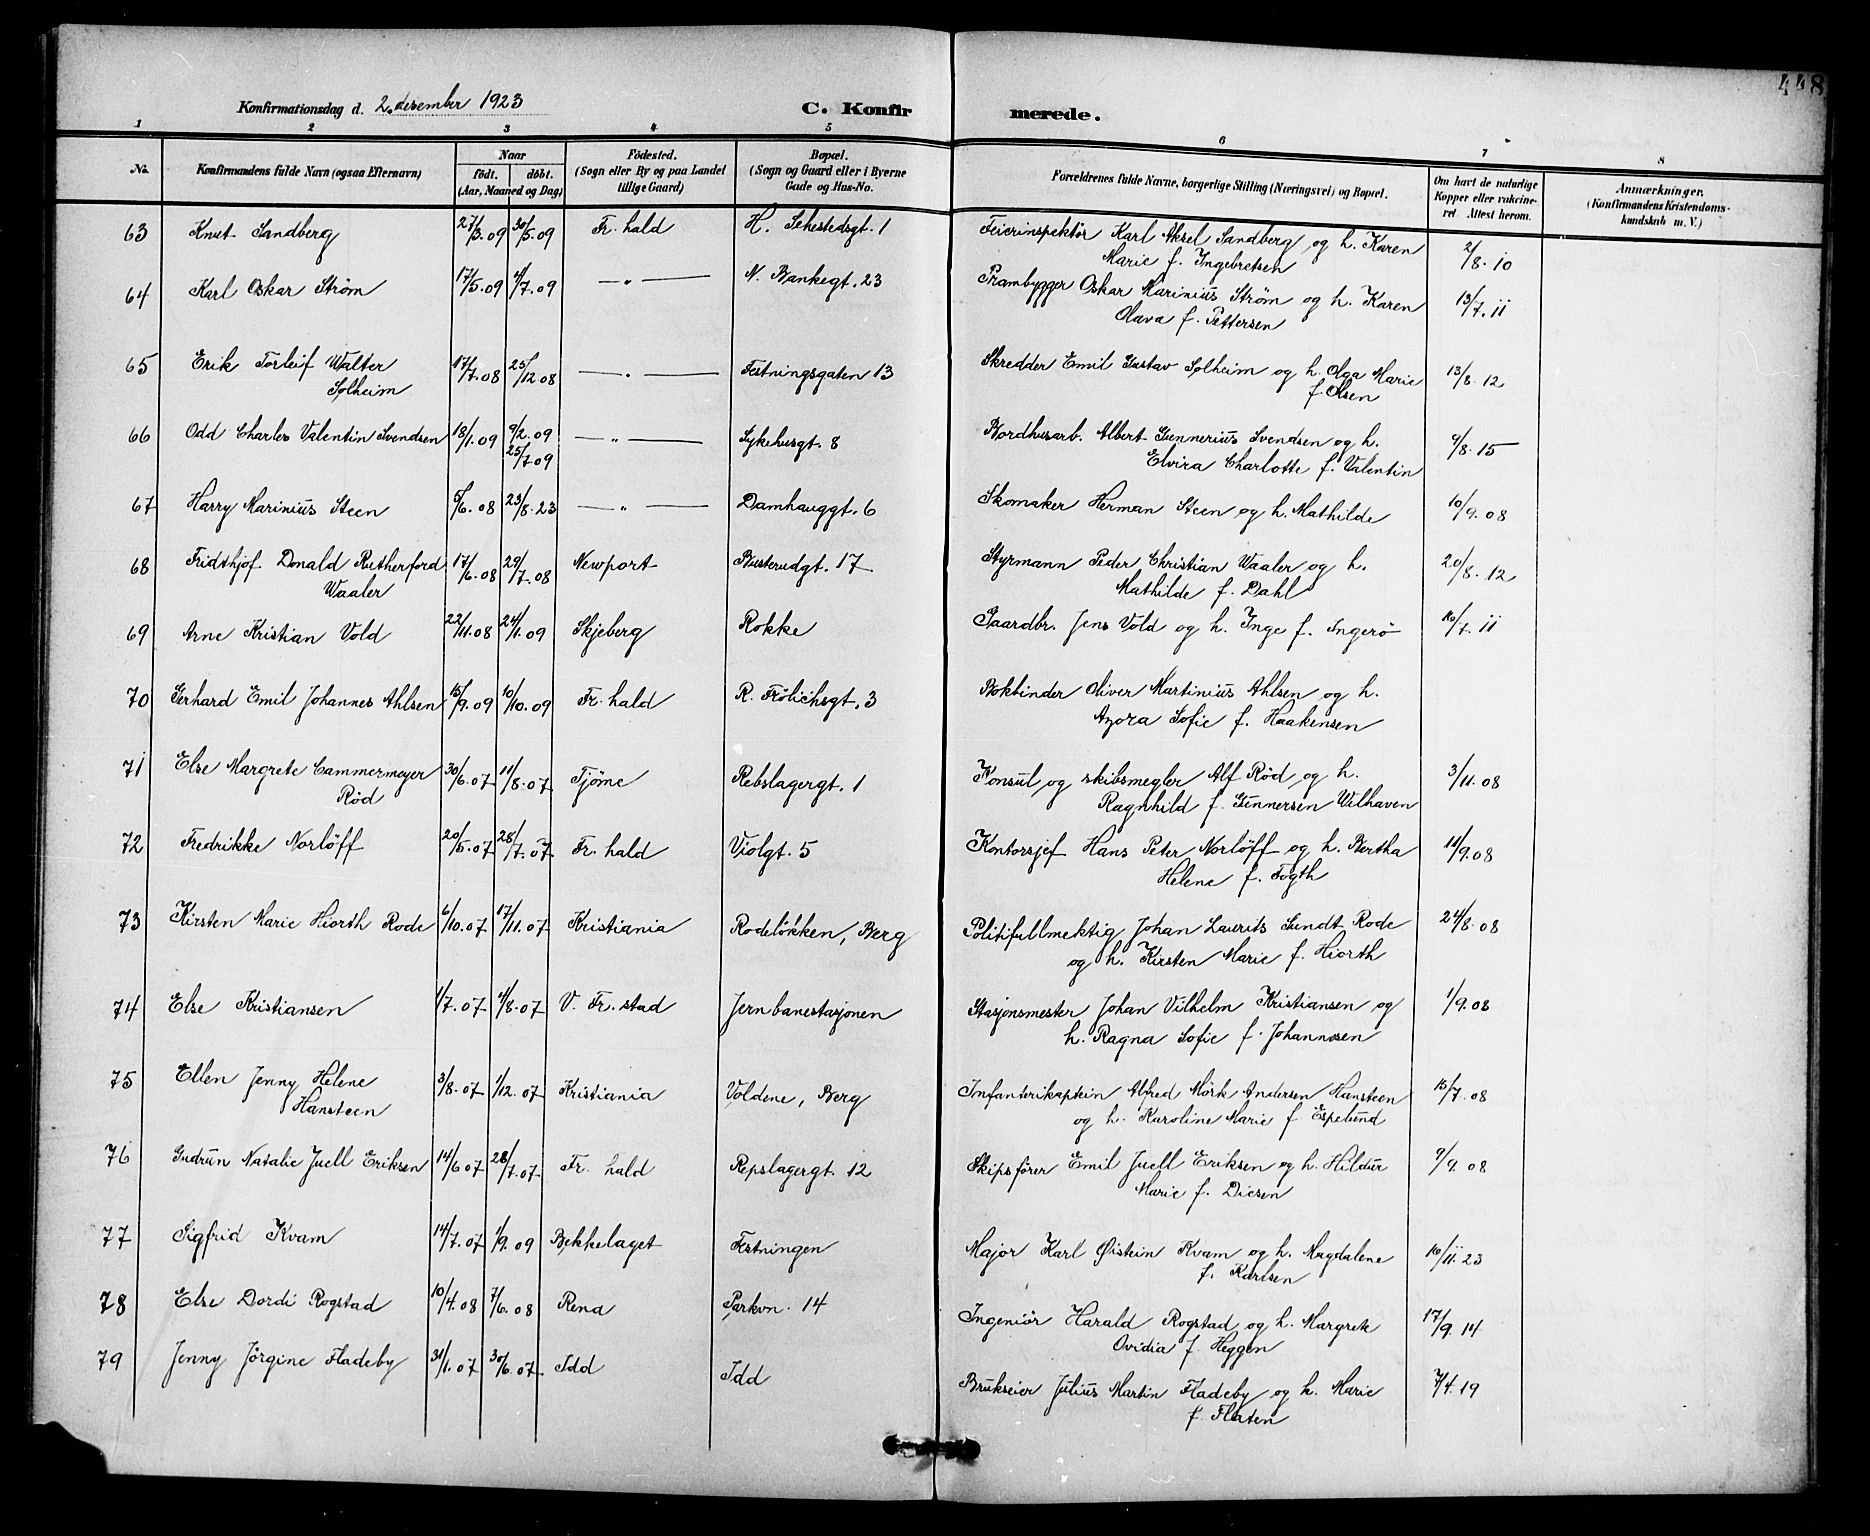 448
Konfirmationsdag d. 2. desember 1923
C. Konfirmerede.
1 2 3 4 5 6 7 8
No. | Konfirmandens fulde Navn (ogsaa Efternavn) | Naar født. døbt. (Aar, Maaned og Dag) | Fødested. (Sogn eller By og paa Landet tillige Gaard) | Bopæl. (Sogn og Gaard eller i Byerne Gade og Hus-No. | Forældrenes fulde Navne, borgerlige Stilling (Næringsvei) og Bopæl. | Om havt de naturlige Kopper eller vakcineret. Attest herom. | Anmærkninger. (Konfirmandens Kristendomskundskab m. V.)
63 Knut Sandberg 27/3.09 30/5.09 Fr. hald H. Sehestedsgt. 1 Feierinspektør Karl Aksel Sandberg og h. Karen 2/8.10
Marie f. Ingebretsen
64 Karl Oskar Strøm 17/5.09 4/7.09 —„— N. Bankegt. 23 Prambygger Oskar Marinius Strøm og h. Karen 13/7.11
Olava f. Pettersen
65 Erik Torleif Walter 17/7.08 25/12.08 —„— Festningsgaten 13 Skredder Emil Gustav Solheim og h. Olga Marie 13/8.12
Solheim f. Olsen
66 Odd Charles Valentin Svendsen 18/1.09 9/2.09 —„— Sykehusgt. 8 Bordhusarb. Albert Gunnerius Svendsen og h. 9/8.15
25/7.09 Elvira Charlotte f. Valentin
67 Harry Marinius Steen 5/6.08 23/8.23 —„— Damhauggt. 6 Skomaker Herman Steen og h. Mathilde 10/9.08
68 Fridthjof Donald Rutherford 17/6.08 29/7.08 Newport Busterudgt. 17 Styrmann Peder Christian Waaler og h. 20/8.12
Waaler Mathilde f. Dahl
69 Arne Kristian Vold 22/11.08 24/1.09 Skjeberg Rokke Gaardbr. Jens Vold og h. Inge f. Ingerø 16/7.11
70 Gerhard Emil Johannes Ahlsen 15/9.09 10/10.09 Fr. hald R. Frølichsgt. 3 Bokbinder Oliver Martinius Ahlsen og h.
Azora Sofie f. Haakensen
71 Else Margrete Cammermeyer 30/6.07 11/8.07 Tjøme Rebslagergt. 1 Konsul og skibsmegler Alf Rød og h. 3/11.08
Rød Ragnhild f. Gunnersen Welhaven
72 Fredrikke Norløff 20/5.07 28/7.07 Fr. hald Violgt. 5 Kontorsjef Hans Peter Norløff og h. Bertha 11/9.08
Helene f. Fogth
73 Kirsten Marie Hiorth Rode 6/10.07 17/11.07 Kristiania Rodeløkken, Berg Politifullmektig Johan Laurits Sundt Rode 24/8.08
og h. Kirsten Marie f. Hiorth
74 Else Kristiansen 1/7.07 4/8.07 V. Fr. stad Jernbanestasjonen Stasjonsmester Johan Vilhelm Kristiansen og 1/9.08
h. Ragna Sofie f. Johannsen
75 Ellen Jenny Helene 3/8.07 1/12.07 Kristiania Voldene, Berg Infanterikaptein Alfred Mørk Andersen Hansteen 15/7.08
Hansteen og h. Karoline Marie f. Espelund
76 Gudrun Natalie Juell Eriksen 14/6.07 28/7.07 Fr. hald Repslagergt. 12 Skipsfører Emil Juell Eriksen og h. Hildur 9/9.08
Marie f. Diesen
77 Sigfrid Kvam 14/7.07 1/9.09 Bekkelaget Festningen Major Karl Øistein Kvam og h. Magdalene 16/11.23
f. Karlsen
78 Else Dordi Rogstad 10/4.08 7/6.08 Rena Parkvn. 14 Ingeniør Harald Rogstad og h. Margrete 17/9.14
Ovidia f. Heggen
79 Jenny Jørgine Fladeby 31/1.07 30/6.07 Idd Idd Brukseier Julius Martin Fladeby og h. Marie 7/4.19
f. Flaten